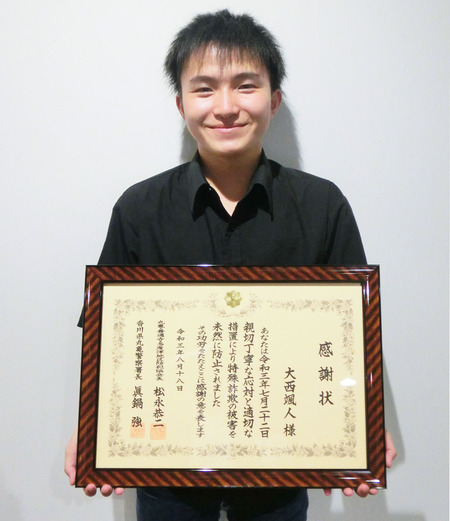 感謝状
大西颯人様
あなたは令和三年七月二十二日
親切丁寧な応対と適切な
措置により特殊詐欺の被害を
未然に防止されました
その功労をたたえここに感謝の意を表します
令和三年八月十八日
松永恭二
香川県丸亀警察署長 眞鍋 強